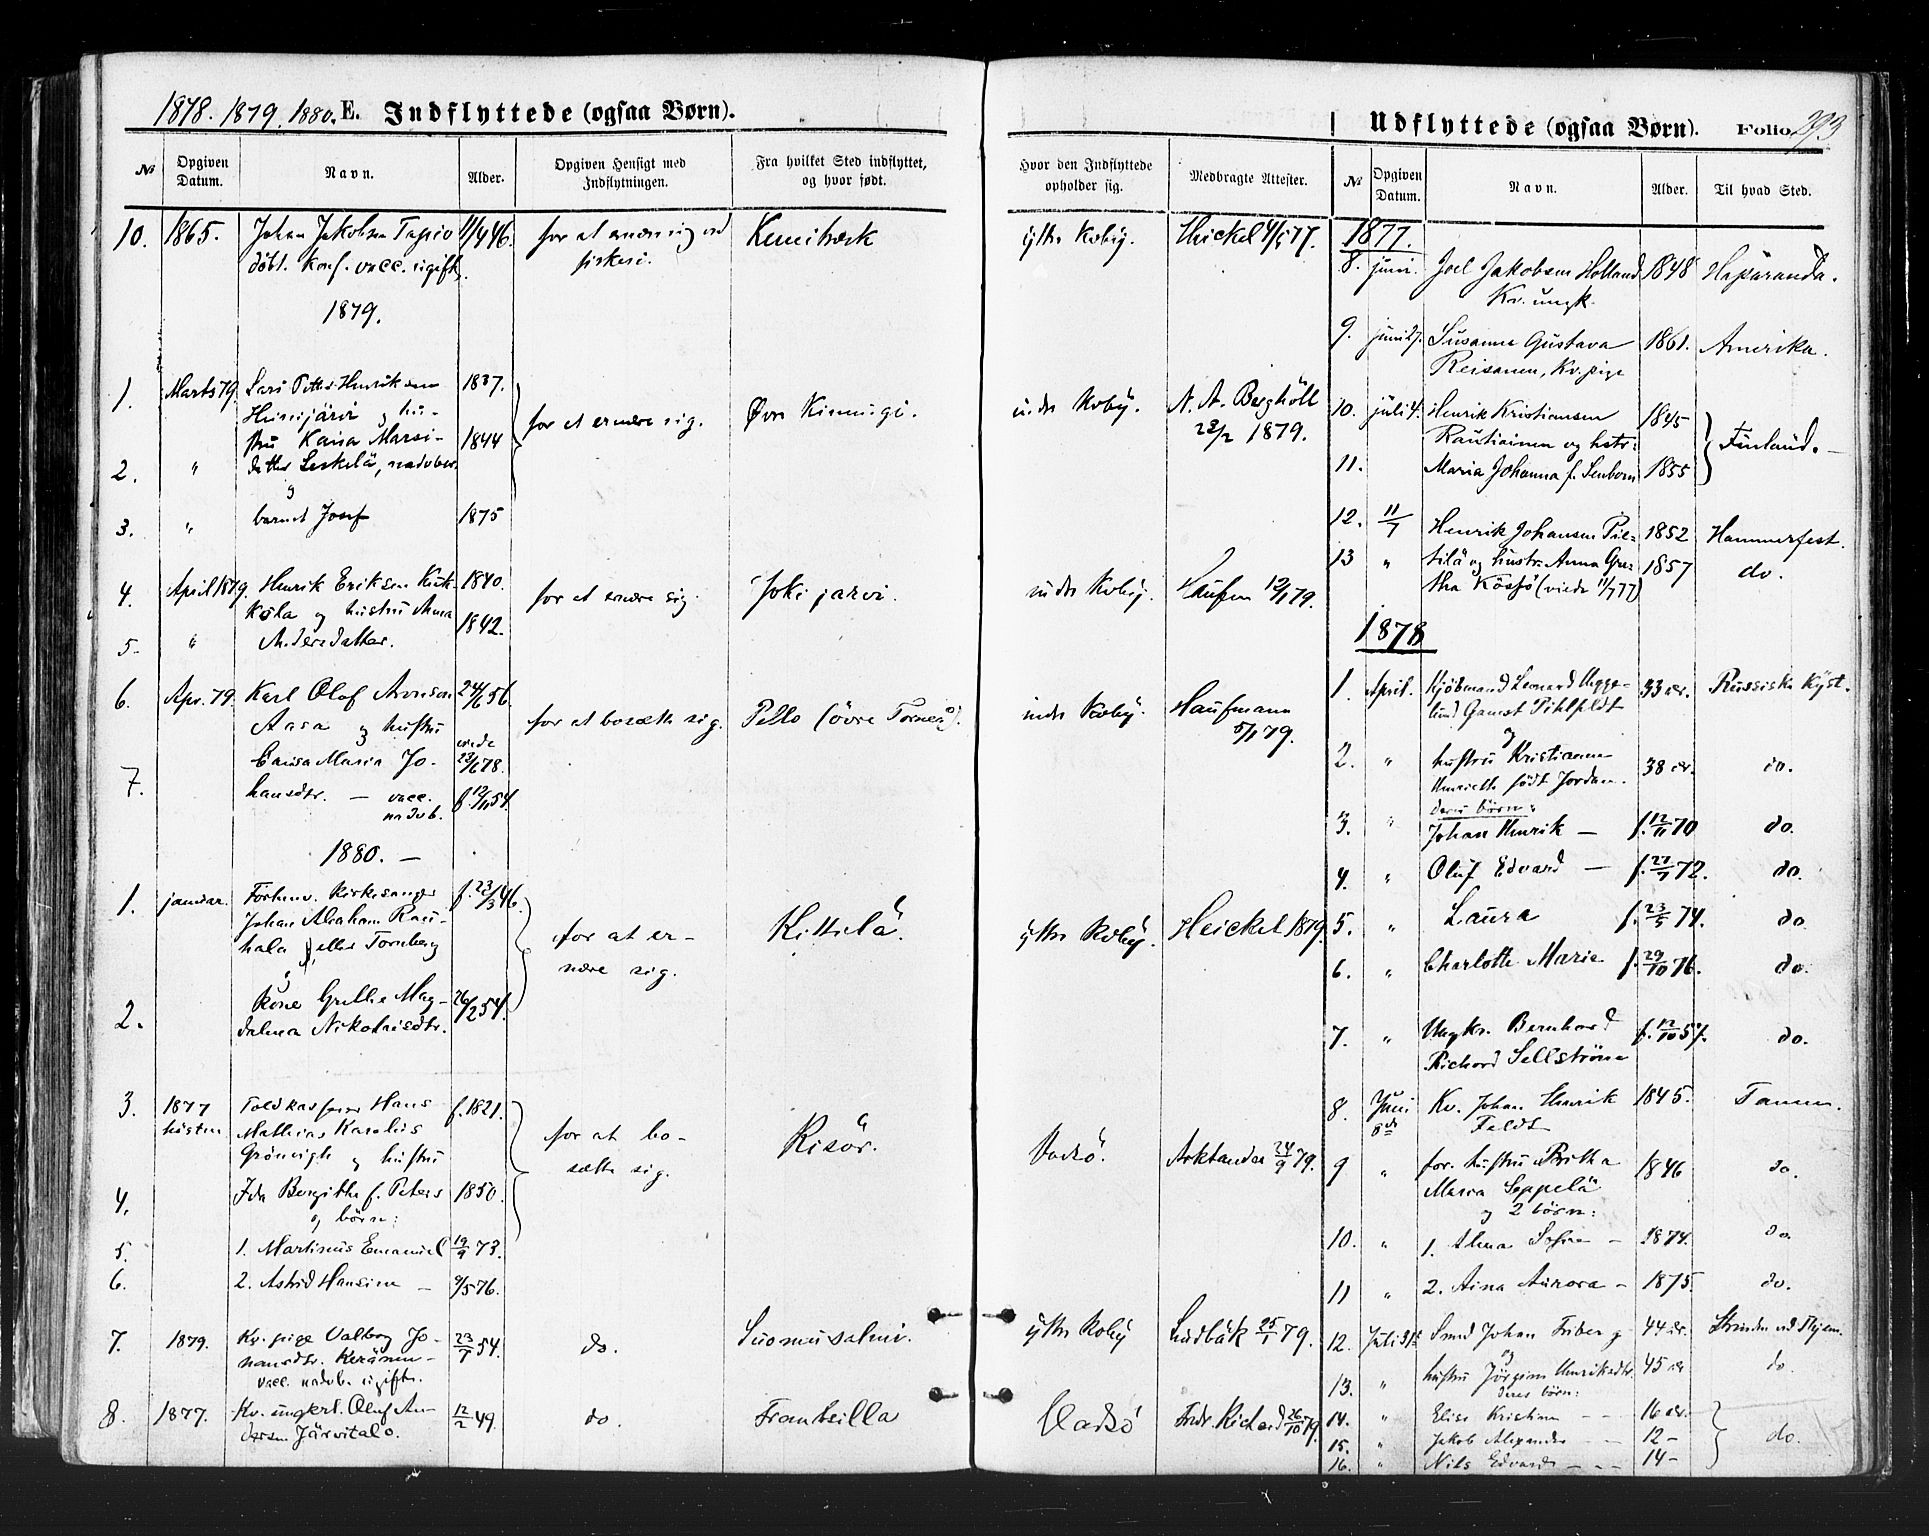 1878. 1879. 1880. E. Indflyttede (ogsaa Børn).
№ Opgiven Datum. Navn. Alder. Opgiven Hensigt med Indflytningen. Fra hvilket Sted indflyttet, og hvor født.
10. 1865. Johan Jakobsen Tapio 11/4 46. for at ernære sig ved Kemiträsk
døbt. konf. vacc. ugift. fiskeri.
1879.
1. Marts 79. Lars Petter Henriksen 1837.
Heinijärvi og hu-
stru Kaisa Marsi- 1844 for at ernære sig. Øvre Kiimingi.
2. " datter Leskelä, nadvber.
og
3. " barnet Josef 1875
4. April 1879. Henrik Eriksen Kuk- 1840. for at ernære sig. Jokijarvi.
kola og hustru Anna 1842.
5. " Andersdatter.
6. Apr. 79. Karl Olof Aronson 24/6 56.
Aasa og hustru for at bosætte sig. Pello (övre Torneå).
Caisa Maria Jo- viede 23/6 78.
7. hansdtr. — vacc. f. 12/11 54.
nadvb.
1880. —
1. januar. Forhenv. kirkesanger f. 23/3 46.
Johan Abraham Rau-
hala eller Tornberg for at er- Kittilä.
og nære sig.
2. kone Grethe Mag- 26/2 54.
dalena Nikolaisdtr.
3. 1877 Toldkasserer Hans f. 1821.
høsten Mathias Karelius for at bo- Risör.
Grönvigh og hustru sætte sig.
4. Ida Bergithe f. Peters 1850.
og börn:
5. 1. Martinus Emanuel 19/9 73.
6. 2. Astrid Hansine — 9/5 76.
7. 1879. Kv. pige Valborg Jo- 23/7 54. do. Suomusalmi.
hansdtr. Keränen —
vacc. nadvb. ugift.
8. 1877. Kv. ungkrl. Oluf An- 12/2 49. do. Frantsilla
dersen Järvitalo.
Udflyttede (ogsaa Børn). Folio 293
Hvor den Indflyttede opholder sig. Medbragte Attester. № Opgiven Datum. Navn. Alder. Til hvad Sted.
ytre Kvby. Heickel 4/5 77. 1877.
8. juni. Joel Jakobsen Holland 1848 Haparanda.
Kv. ungk.
9. juni 27. Susanna Gustava 1861. Amerika.
Reisanen, Kv. pige
indre Kvby. N. A. Berghöll 10. juli 4. Henrik Kristiansen 1845
28/2 1879. Rautiainen og hstr: Finland. —
11. Maria Johanna f. Senborn 1855
12. 11/7 Henrik Johansen Pie- 1852 Hammerfest.
indre Kvby. Haufm 12/1 79. 13 " tilä og hustr. Anna Gre- 1857 do.
tha (viede 11/7 77)
1878
1. April. Kjöbmand Leonard Ugge- 33 år. Russiske Kyst.
indre Kvby. Haufmann lund Gamst Pihlfeldt
5/1 79. og
2. " hustru Kristianne 38 år. do.
Henriette født Jordan.
deres börn:
3. " Johan Henrik — f. 12/11 70 do.
4. " Oluf Edvard — f. 27/7 72. do.
ytre Kvby. Heickel 1879. 5. " Laura f. 23/5 74. do.
6. " Charlotte Marie f. 29/10 76. do.
7. " Ungkr. Bernhard f. 12/10 57. do.
Richard Sellström
8. Juni Kv. Johan Henrik 1845. Tanen.
8de Feldt
Vadsö. Arktander 24/9 79. 9 " for. hustru Britha 1846 do.
Maria Seppelä
og 2 börn:
10. " 1. Alma Sofie — 1874. do.
11 " 2. Aina Aurora — 1875. do.
ytre Kvby Lindbäk 25/1 79. 12. Juli 31te Smed Johan Friberg 44 år. Strinden ved Thjem.
og
13. " hustru Jörgine Henriksdtr. 45 år do.
deres börn:
Vadsö Fredr. Richard 26/10 79. 14. " Elise Kristine — 16 år.
15. " Jakob Alexander — 12 — do.
16. " Nils Edvard — 14 —